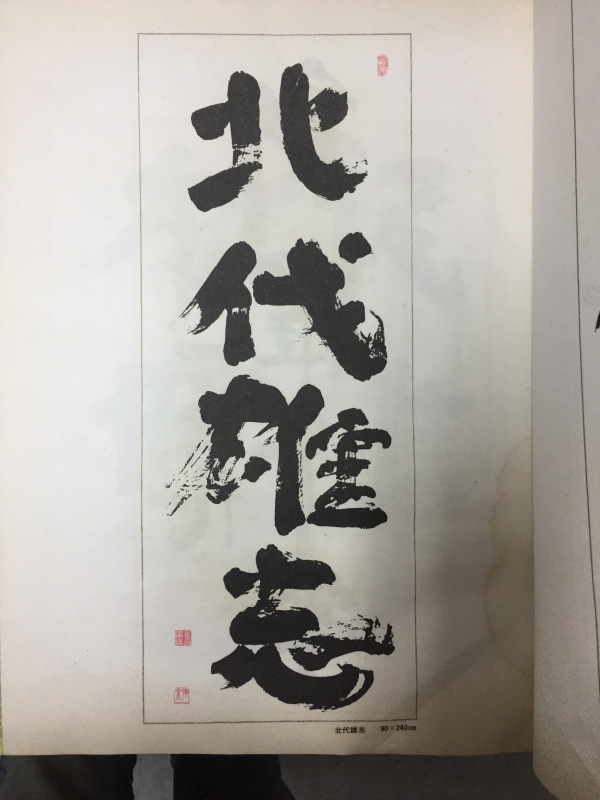 北代雄志
北代雄志 90×240cm